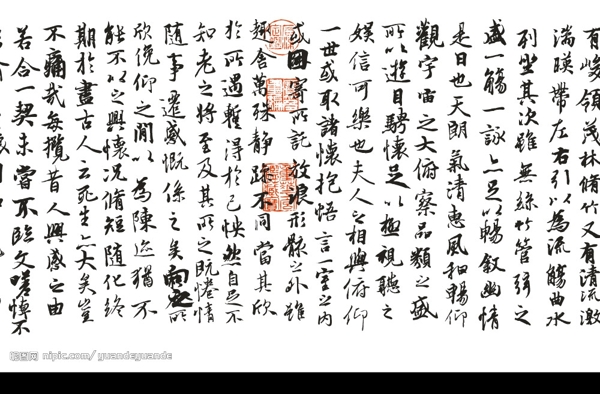 有峻領茂林脩竹又有清流激
湍暎帶左右引以為流觴曲水
列坐其次雖無絲竹管弦之
盛一觴一詠亦足以暢敘幽情
是日也天朗氣清惠風和暢仰
觀宇宙之大俯察品類之盛
所以遊目騁懷足以極視聽之
娛信可樂也夫人之相與俯仰
一世或取諸懷抱悟言一室之內
或因寄所託放浪形骸之外雖
趣舍萬殊靜躁不同當其欣
於所遇蹔得於己怏然自足不
知老之將至及其所之既惓情
隨事遷感慨係之矣向之所
欣俛仰之間以為陳迹猶不
能不以之興懷況脩短隨化終
期於盡古人云死生亦大矣豈
不痛哉每攬昔人興感之由
若合一契未嘗不臨文嗟悼不
昵图网 nipic.com/ yuandeyuande